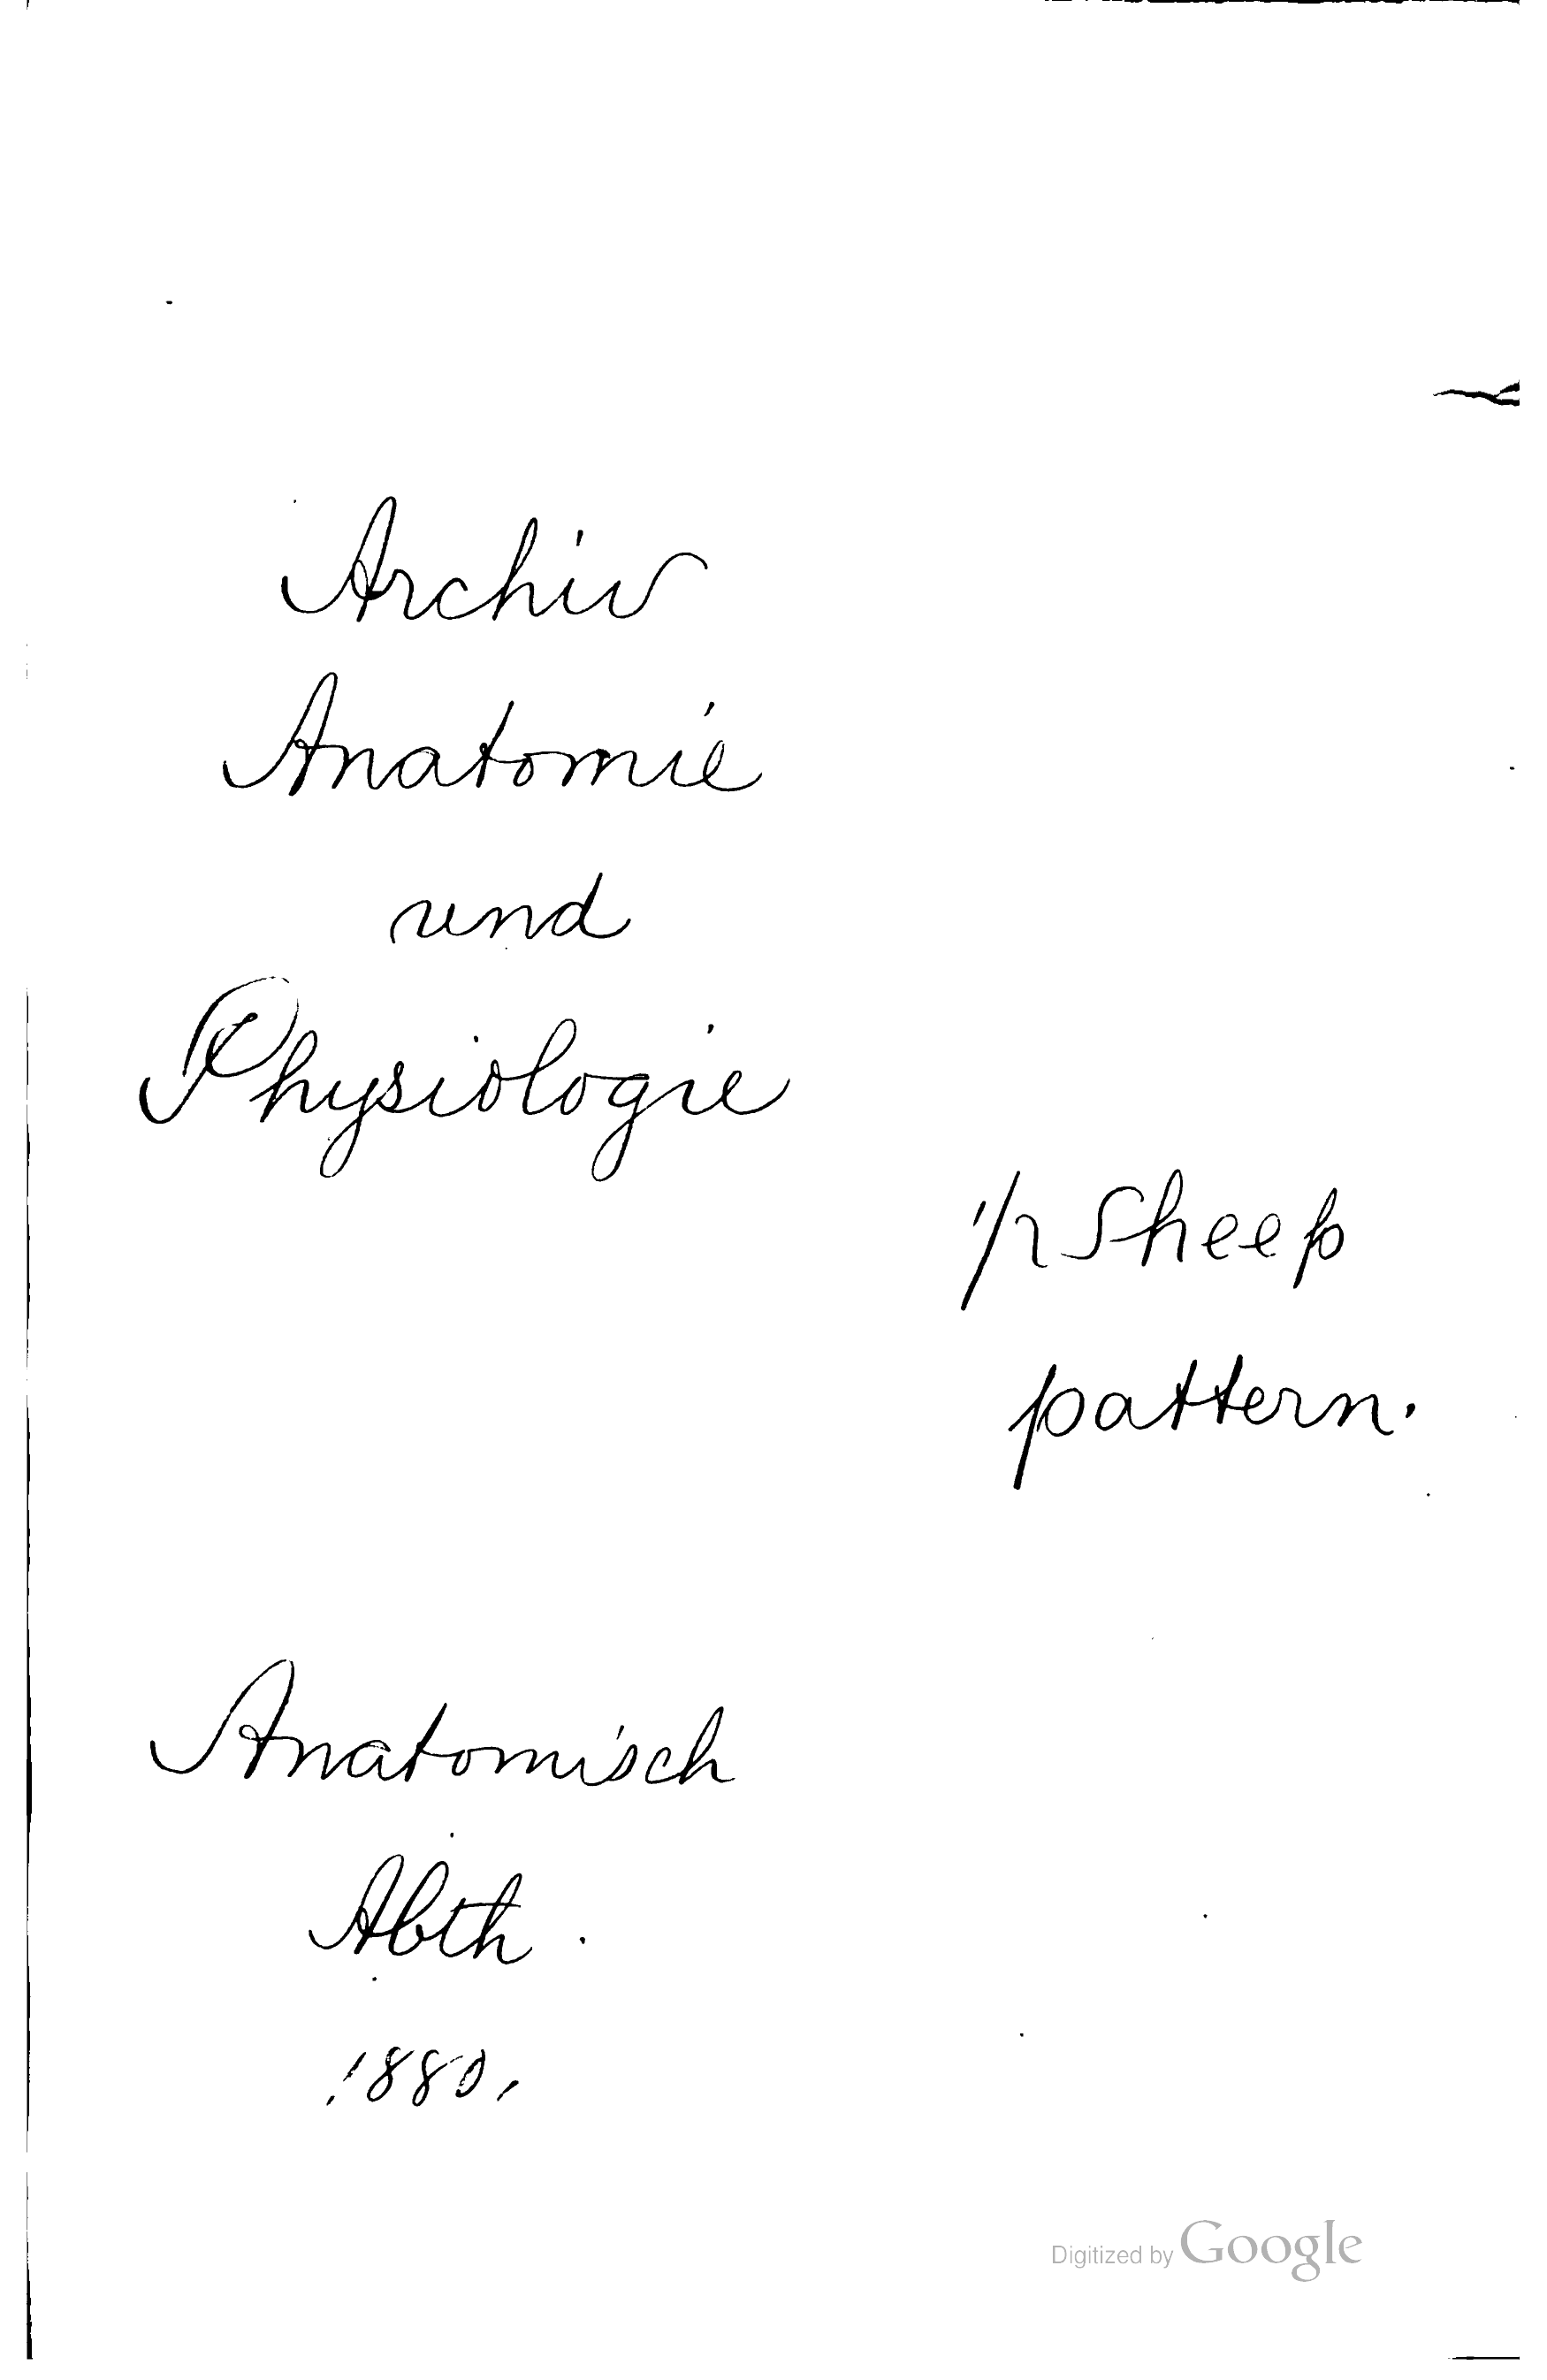 Archiv
Anatomie
und
Physiologie
1/2 Sheep
pattern.
Anatomisch
Abth.
1880.
Digitized by Google